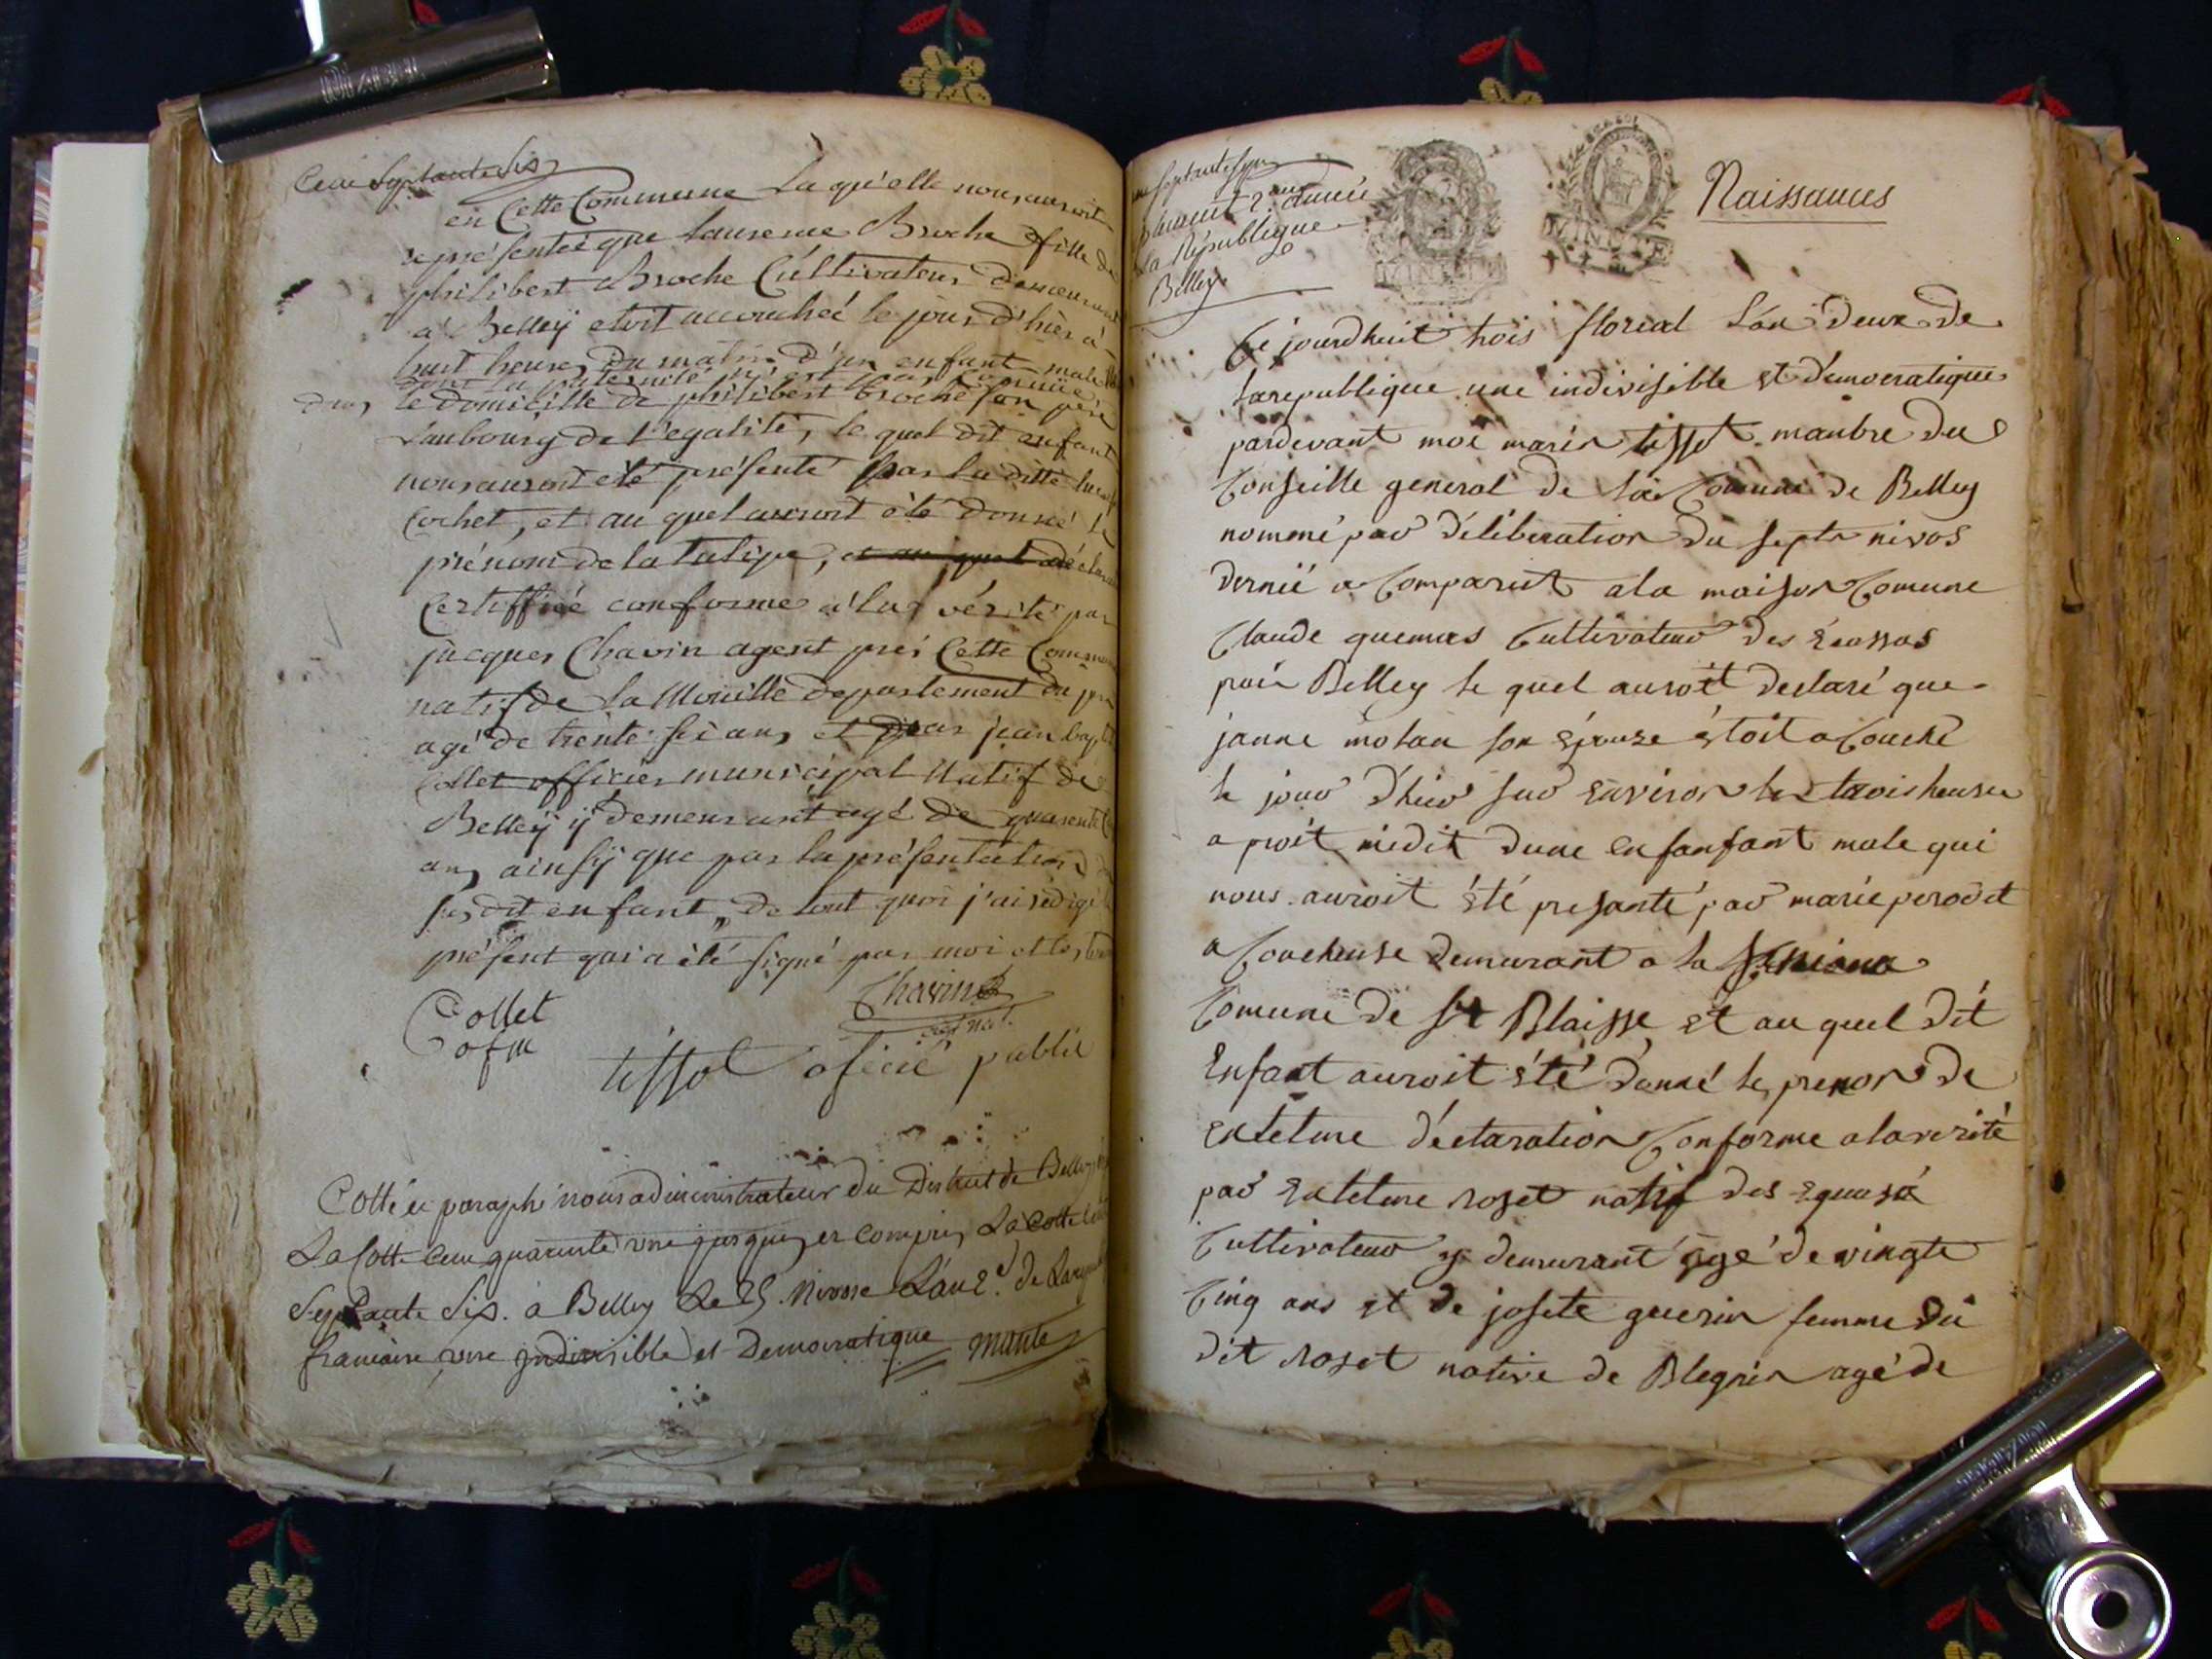 Cent Septante Six
en Cette Commune Laqu'elle nous auroit
représentée que Laurence Broche fille de
philibert Broche Cultivateur demeurant
à Belleÿ etoit accouchée le jour d'hièr à
huit heures du matin d'un enfant male
dont la paternité n'est pas connüe
dans le domicille de philibert broche son père
faubourg de l'egalité, le quel dit enfant
nous auroit été présenté par la ditte
Cochet, et au quel auroit été donné le
prénom de la tulipe, et au quel
Certiffiée conforme à la vérité par
jacques Chavin agent près Cette Commune
natif de la Mouille departement du
agé de trente six ans et par jean bap
Collet officier municipal Natif de
Belleÿ ÿ demeurant agé de quarente
ans ainsÿ que par la présentation
susdit enfant, de tout quoi j'ai rédigé
présent qui a été signé par moi et les
Chavin
agt nat.
Collet
ofm
tissot oficié public
Cotté et paraphé nous administrateur du District de Belley
La Cotte cent quarente une jusques et compris La Cotte
Septante Six. à Belley Le 25 Nivose L'an 2e. de La
francaise une indivisible et Democratique
Naissances
2e. année
La République
Belley
Ce jourdhuit trois floreal Lan deux de
la republique une indivisible et démocratique
pardevant moi marin tissot manbre du
Conseille general de la Comune de Belley
nommé par déliberation du septe nivos
dernié a Comparut a la maison Comune
Claude Cultivateur des
Belley le quel auroit declaré que
janne son épouse étoit acouché
le jour d'hier sur environ les trois heures
a proit midit dune enfanfant male qui
nous auroit été presanté par marie
acoucheuse demurant a la
Comune de St Blaisse et au quel dit
Enfant auroit été donné le prenon de
entelme déclaration Conforme a la verité
par entelme roset natif des
Cultivateur y demurant agé de vingte
Cinq ans et de josete guerin femme du
dit roset native de agé de